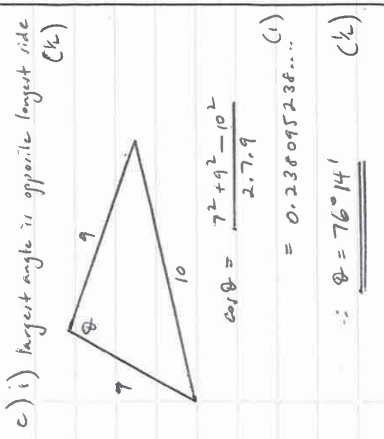 c) i) largest angle is opposite longest side
(½)
9
θ
7
10
cos θ = 7² + 9² − 10² / 2.7.9
= 0.238095238.... (1)
∴ θ = 76°14' (½)